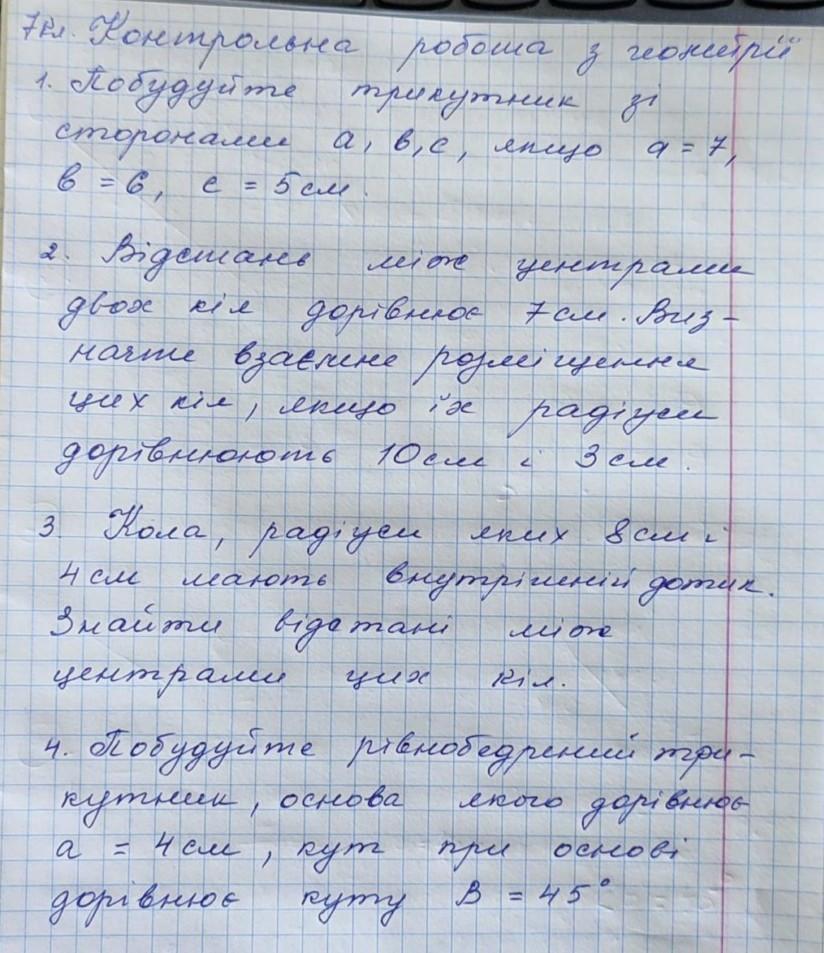 7кл. Контрольна робота з геометрії
1. Побудуйте трикутник зі
сторонами a, b, c, якщо a = 7,
b = 6, c = 5 см.
2. Відстань між центрами
двох кіл дорівнює 7 см. Виз-
начте взаємне розміщення
цих кіл, якщо їх радіуси
дорівнюють 10 см і 3 см.
3. Кола, радіуси яких 8 см і
4 см мають внутрішній дотик.
Знайти відстані між
центрами цих кіл.
4. Побудуйте рівнобедрений три-
кутник, основа якого дорівнює
a = 4 см, кут при основі
дорівнює куту B = 45°